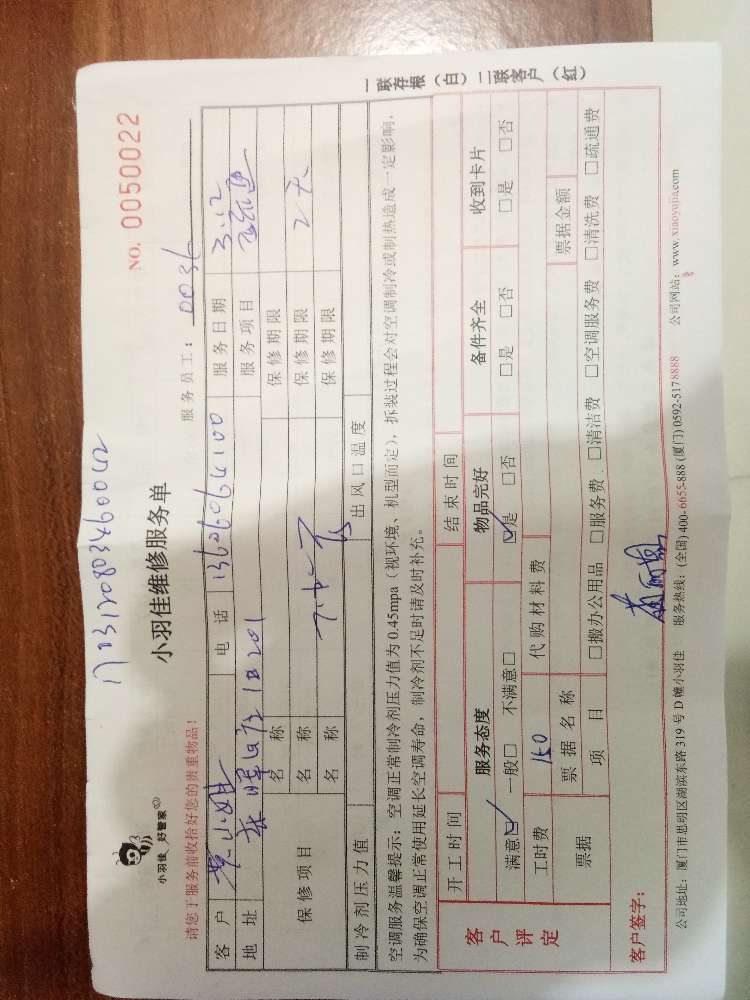 1703120803460042
NO. 0050022
小羽佳 好管家
小羽佳维修服务单
请您于服务前收拾好您的贵重物品！
服务员工： 0036
客户 电话 13606064100 服务日期 3.12
地址 1日201 服务项目
保修项目 名称 保修期限
名称 保修期限 2天
名称 保修期限
制冷剂压力值 出风口温度
空调服务温馨提示：空调正常制冷剂压力值为0.45mpa（视环境、机型而定），拆装过程会对空调制冷或制热造成一定影响，
为确保空调正常使用延长空调寿命，制冷剂不足时请及时补充。
开工时间 结束时间
客户评定 服务态度 物品完好 备件齐全 收到卡片
满意☑ 一般□ 不满意□ ☑是 □否 □是 □否 □是 □否
工时费 150 代购材料费
票据 票据名称 票据金额
项目 □搬办公用品 □服务费 □清洁费 □空调服务费 □清洗费 □疏通费
客户签字：
公司地址：厦门市思明区湖滨东路319号D幢小羽佳 服务热线：(全国) 400-6655-888 (厦门) 0592-5178888 公司网站：www.xiaoyujia.com
一联存根（白）二联客户（红）